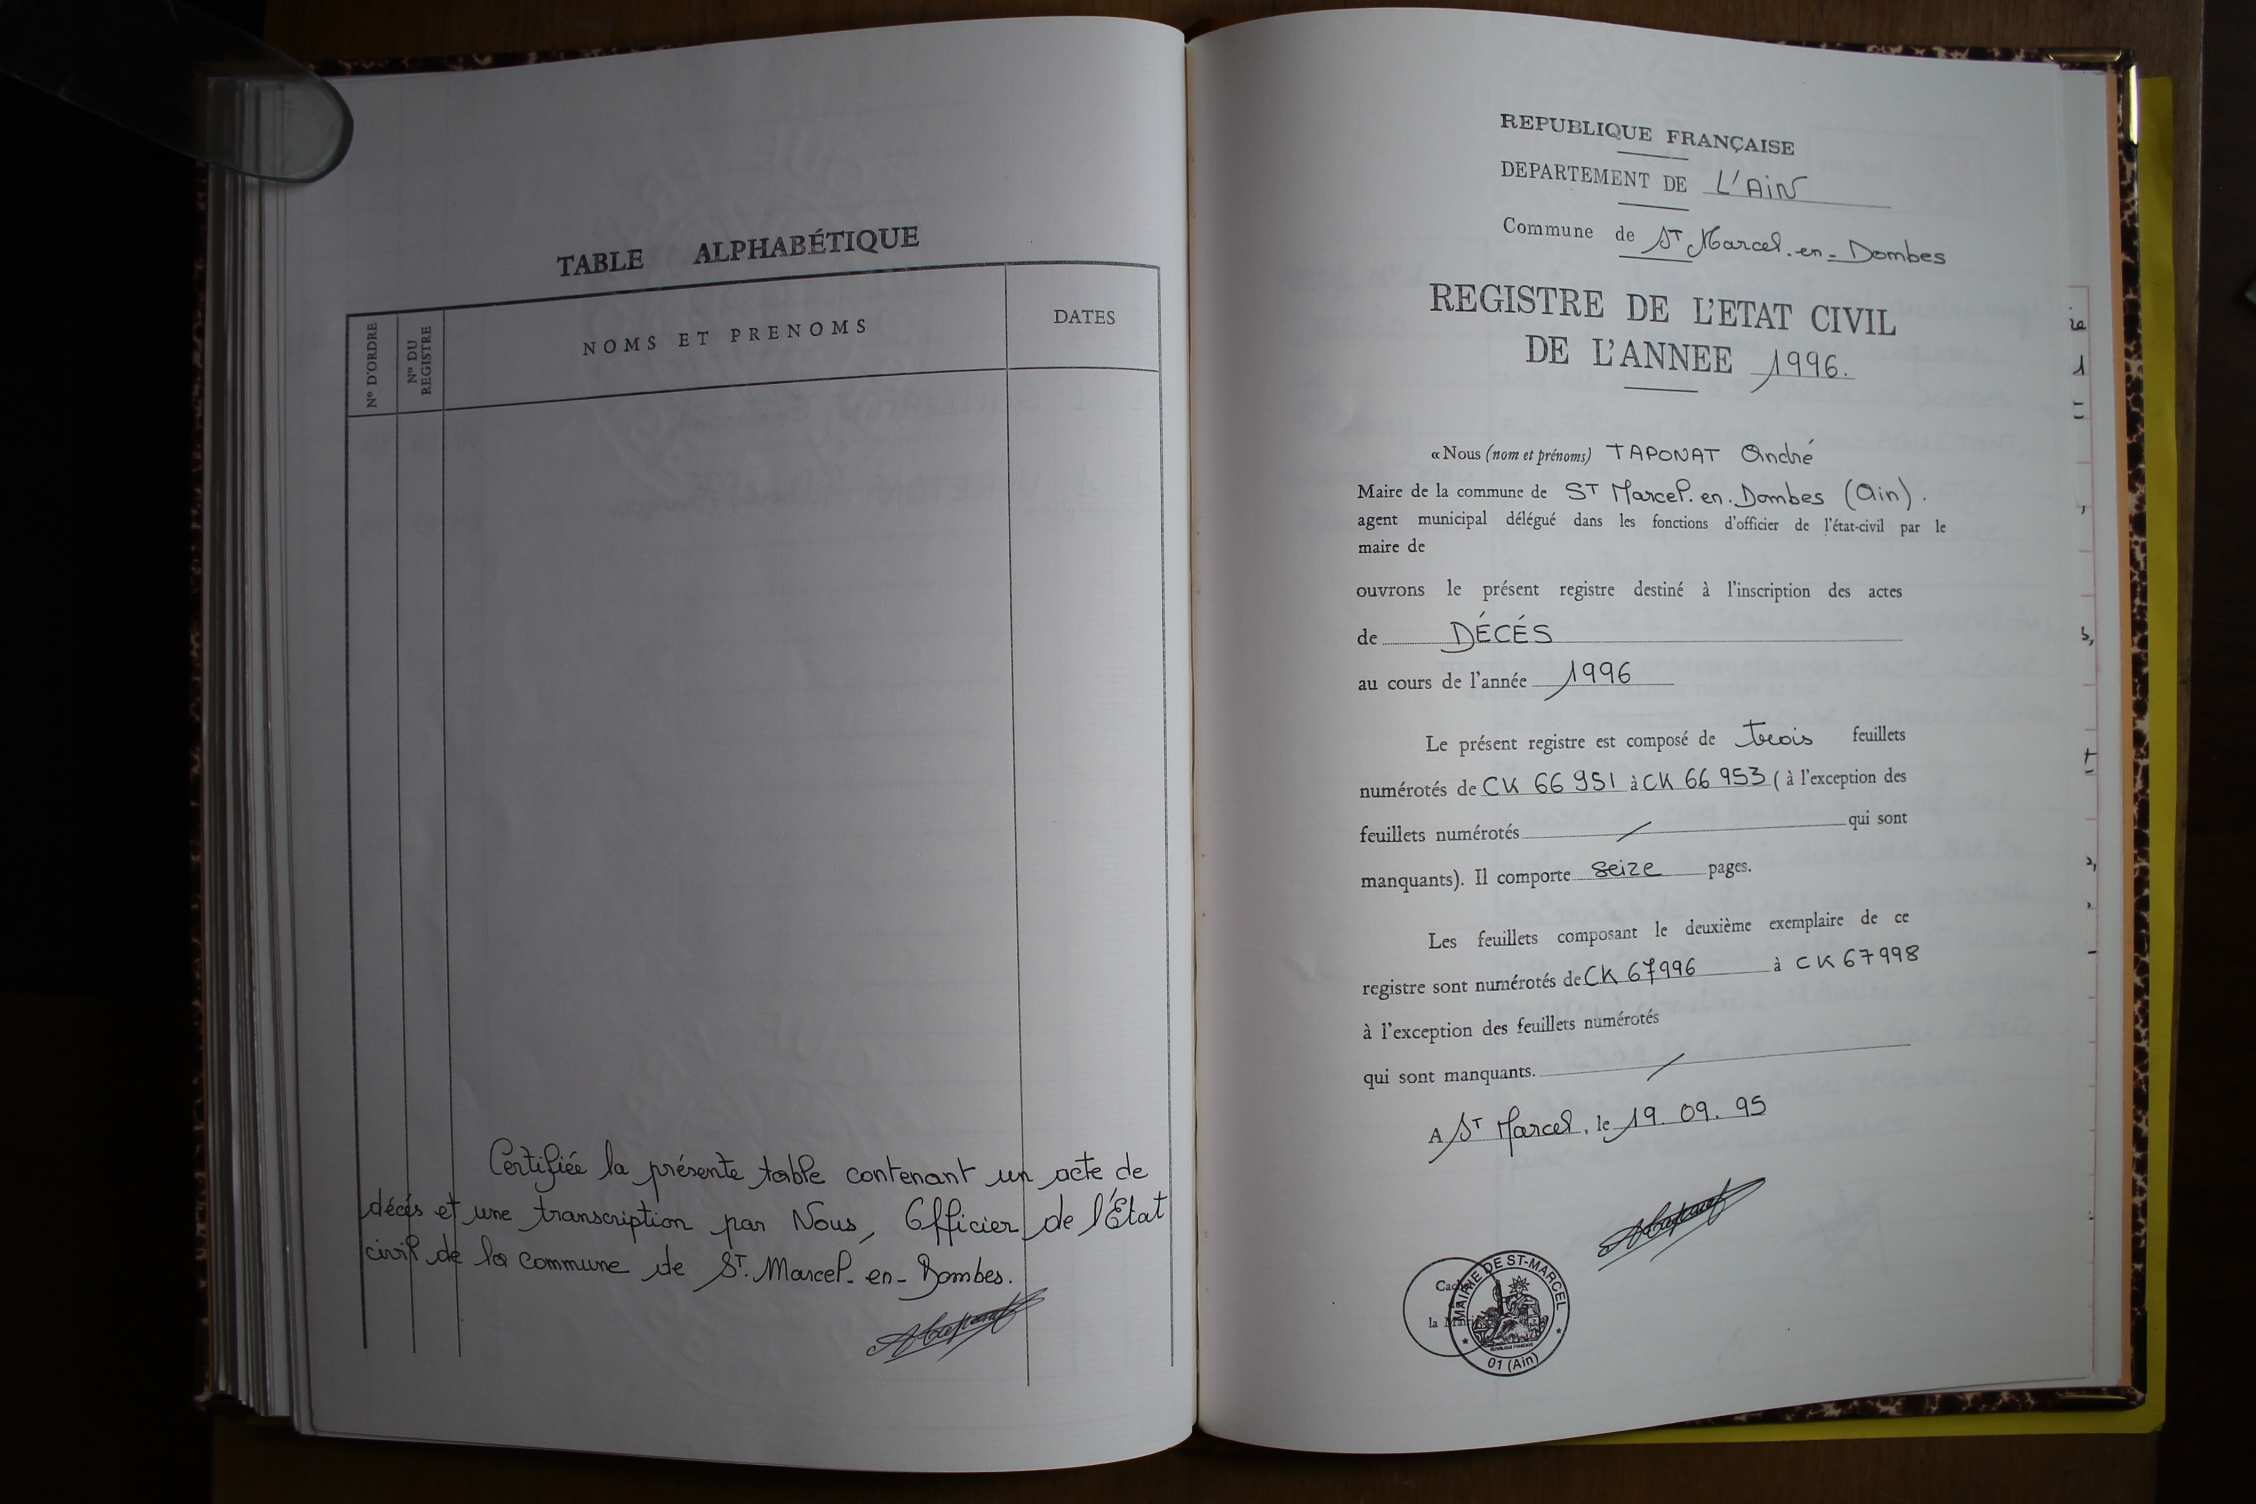 TABLE ALPHABÉTIQUE
Nº D'ORDRE
Nº DU REGISTRE
NOMS ET PRENOMS
DATES
Certifiée la présente table contenant un acte de
décés et une transcription par Nous, Officier de l'Etat
civil de la commune de St. Marcel-en-Dombes.
REPUBLIQUE FRANÇAISE
DEPARTEMENT DE L'AIN
Commune de ST Marcel-en-Dombes
REGISTRE DE L'ETAT CIVIL
DE L'ANNEE 1996.
« Nous (nom et prénoms) TAPONAT André
Maire de la commune de ST Marcel.en.Dombes (Ain).
agent municipal délégué dans les fonctions d'officier de l'état-civil par le
maire de
ouvrons le présent registre destiné à l'inscription des actes
de DÉCÉS
au cours de l'année 1996
Le présent registre est composé de trois feuillets
numérotés de CK 66 951 à CK 66 953 (à l'exception des
feuillets numérotés / qui sont
manquants). Il comporte seize pages.
Les feuillets composant le deuxième exemplaire de ce
registre sont numérotés de CK 67996 à CK 67998
à l'exception des feuillets numérotés
qui sont manquants. /
A ST Marcel, le 19.09.95
MAIRIE DE ST-MARCEL
01 (Ain)